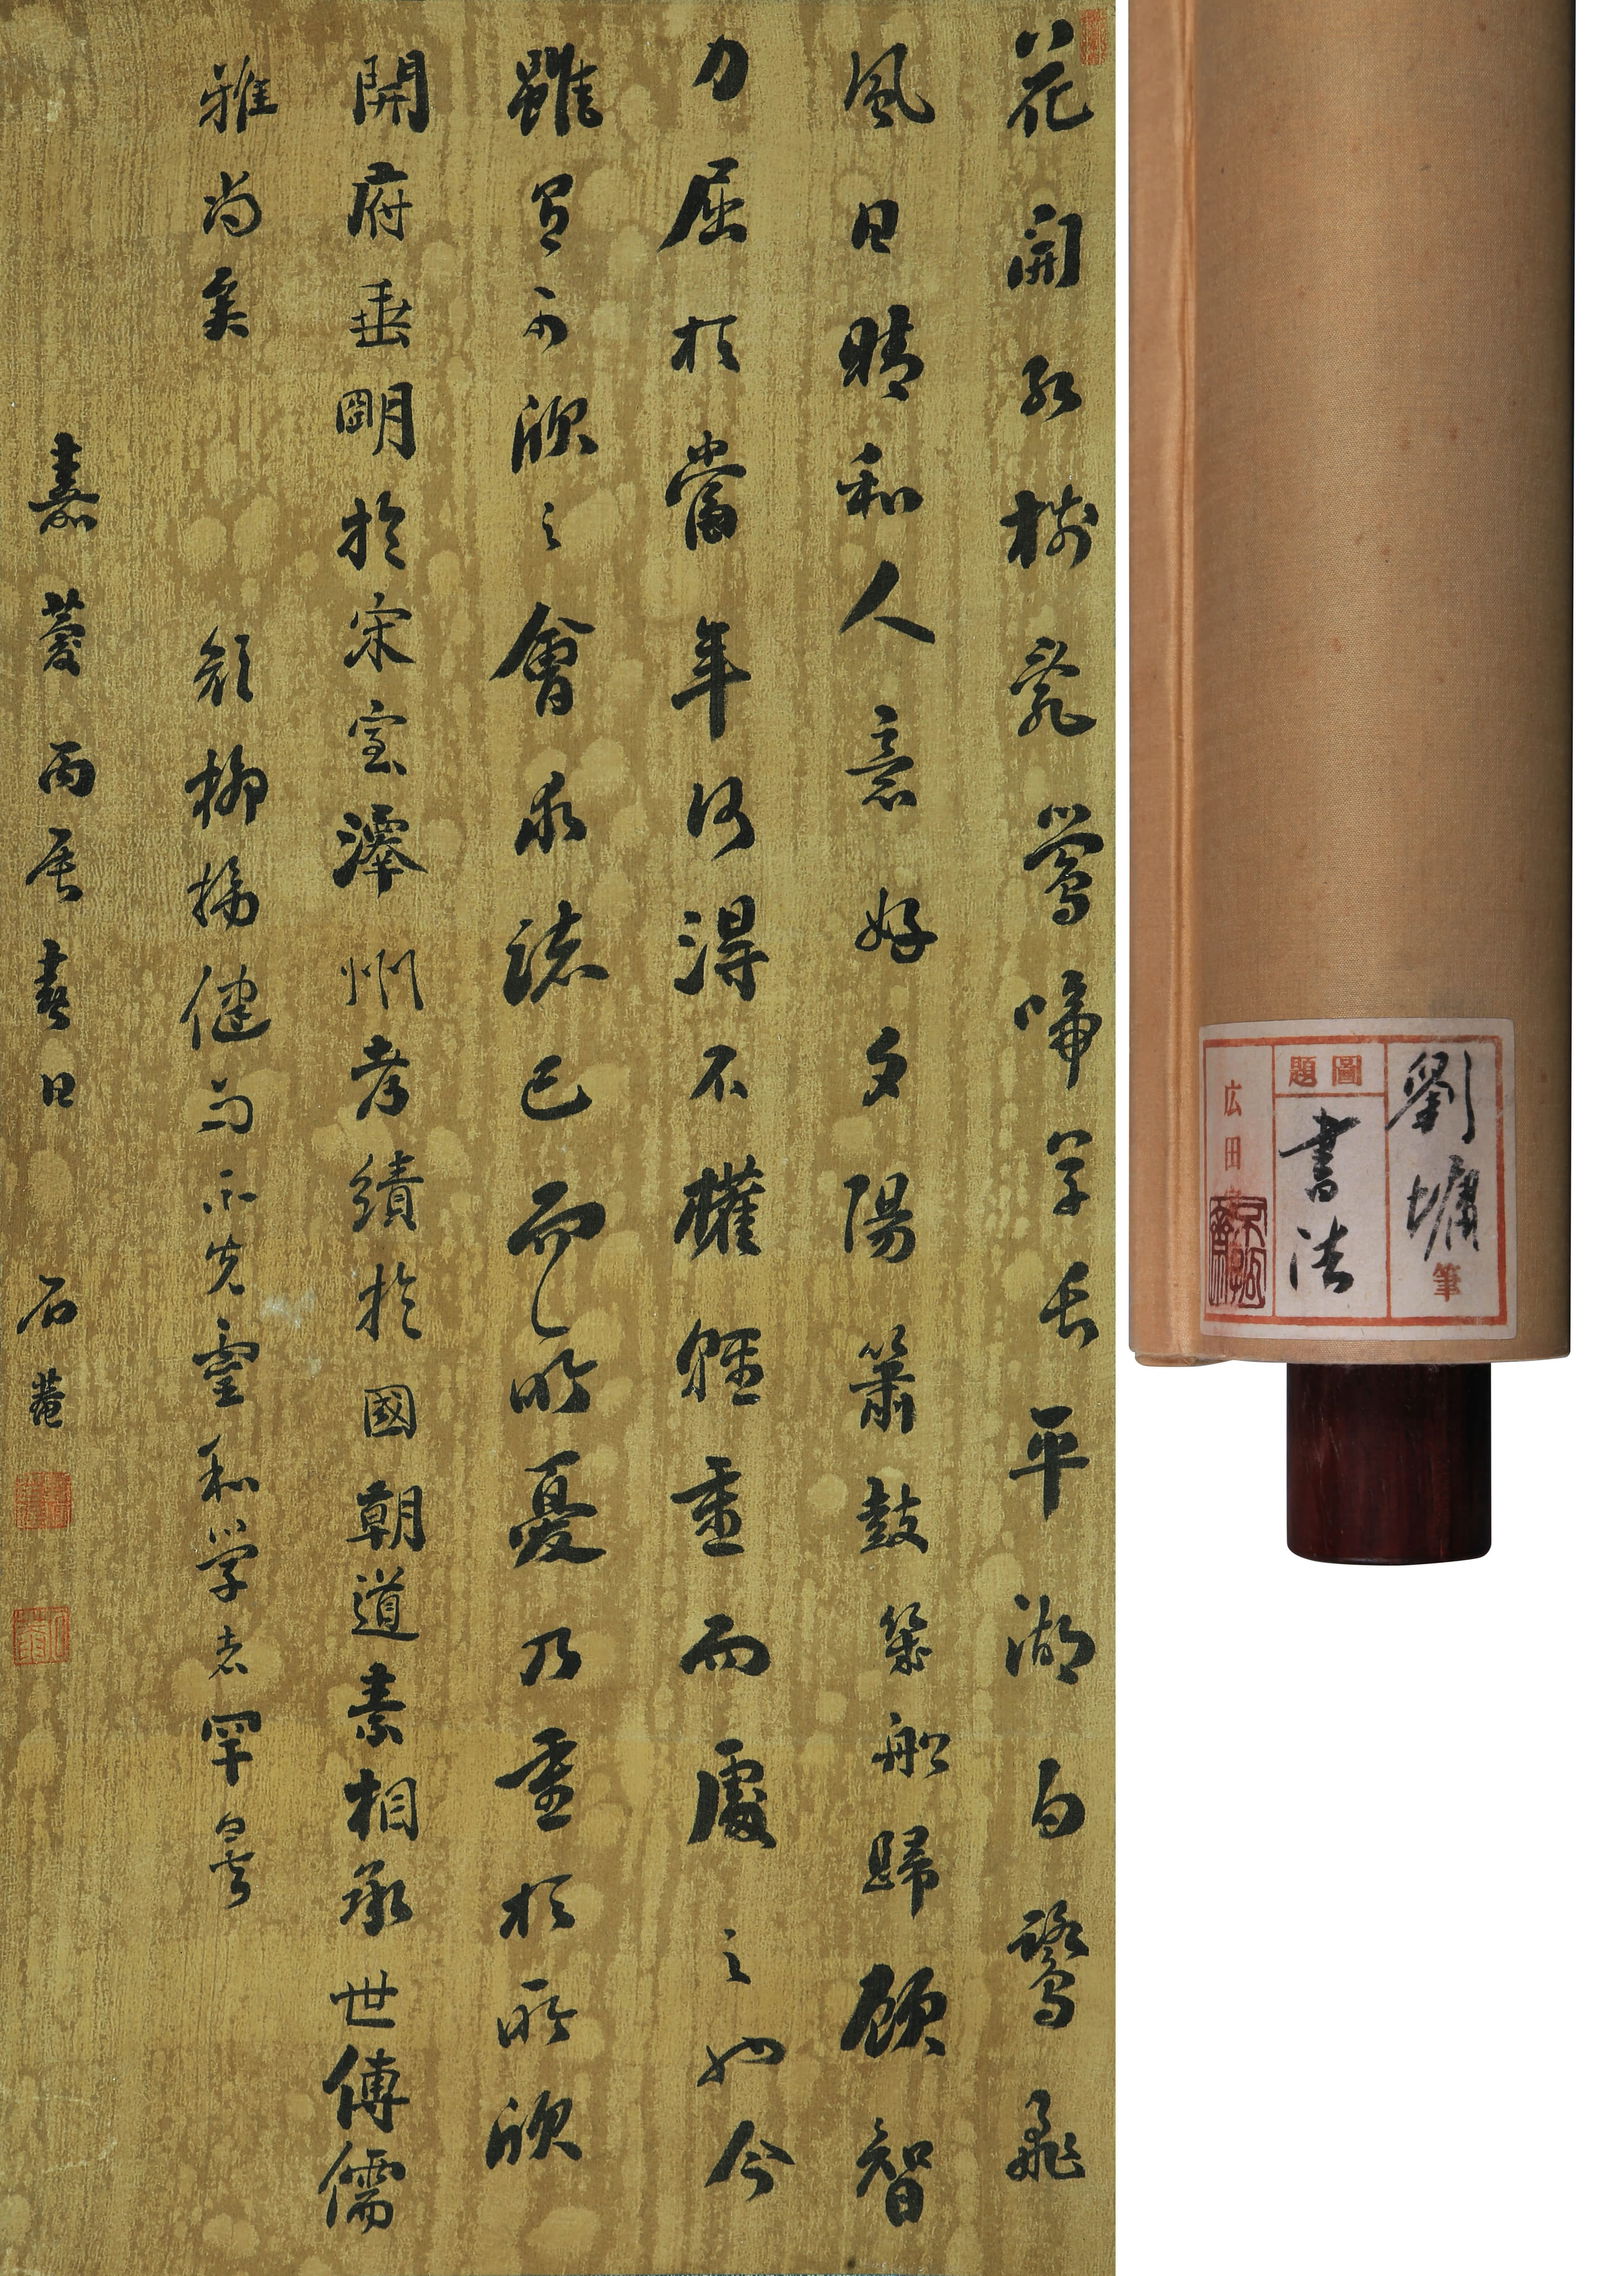 花開紅樹亂鶯啼草長平湖白鷺飛
風日晴和人意好夕陽簫鼓幾船歸顧智
力屈於當年何得不權輕重而處之也今
雖有可欣之會求諸已而所憂乃重於所欣
開府垂明於宋室澤州考績於國朝道素相承世傳儒
雅尚矣 顏柳揚健而不失靈和學者罕
嘉慶丙辰春日 石菴
劉墉筆
圖題
書法
広田